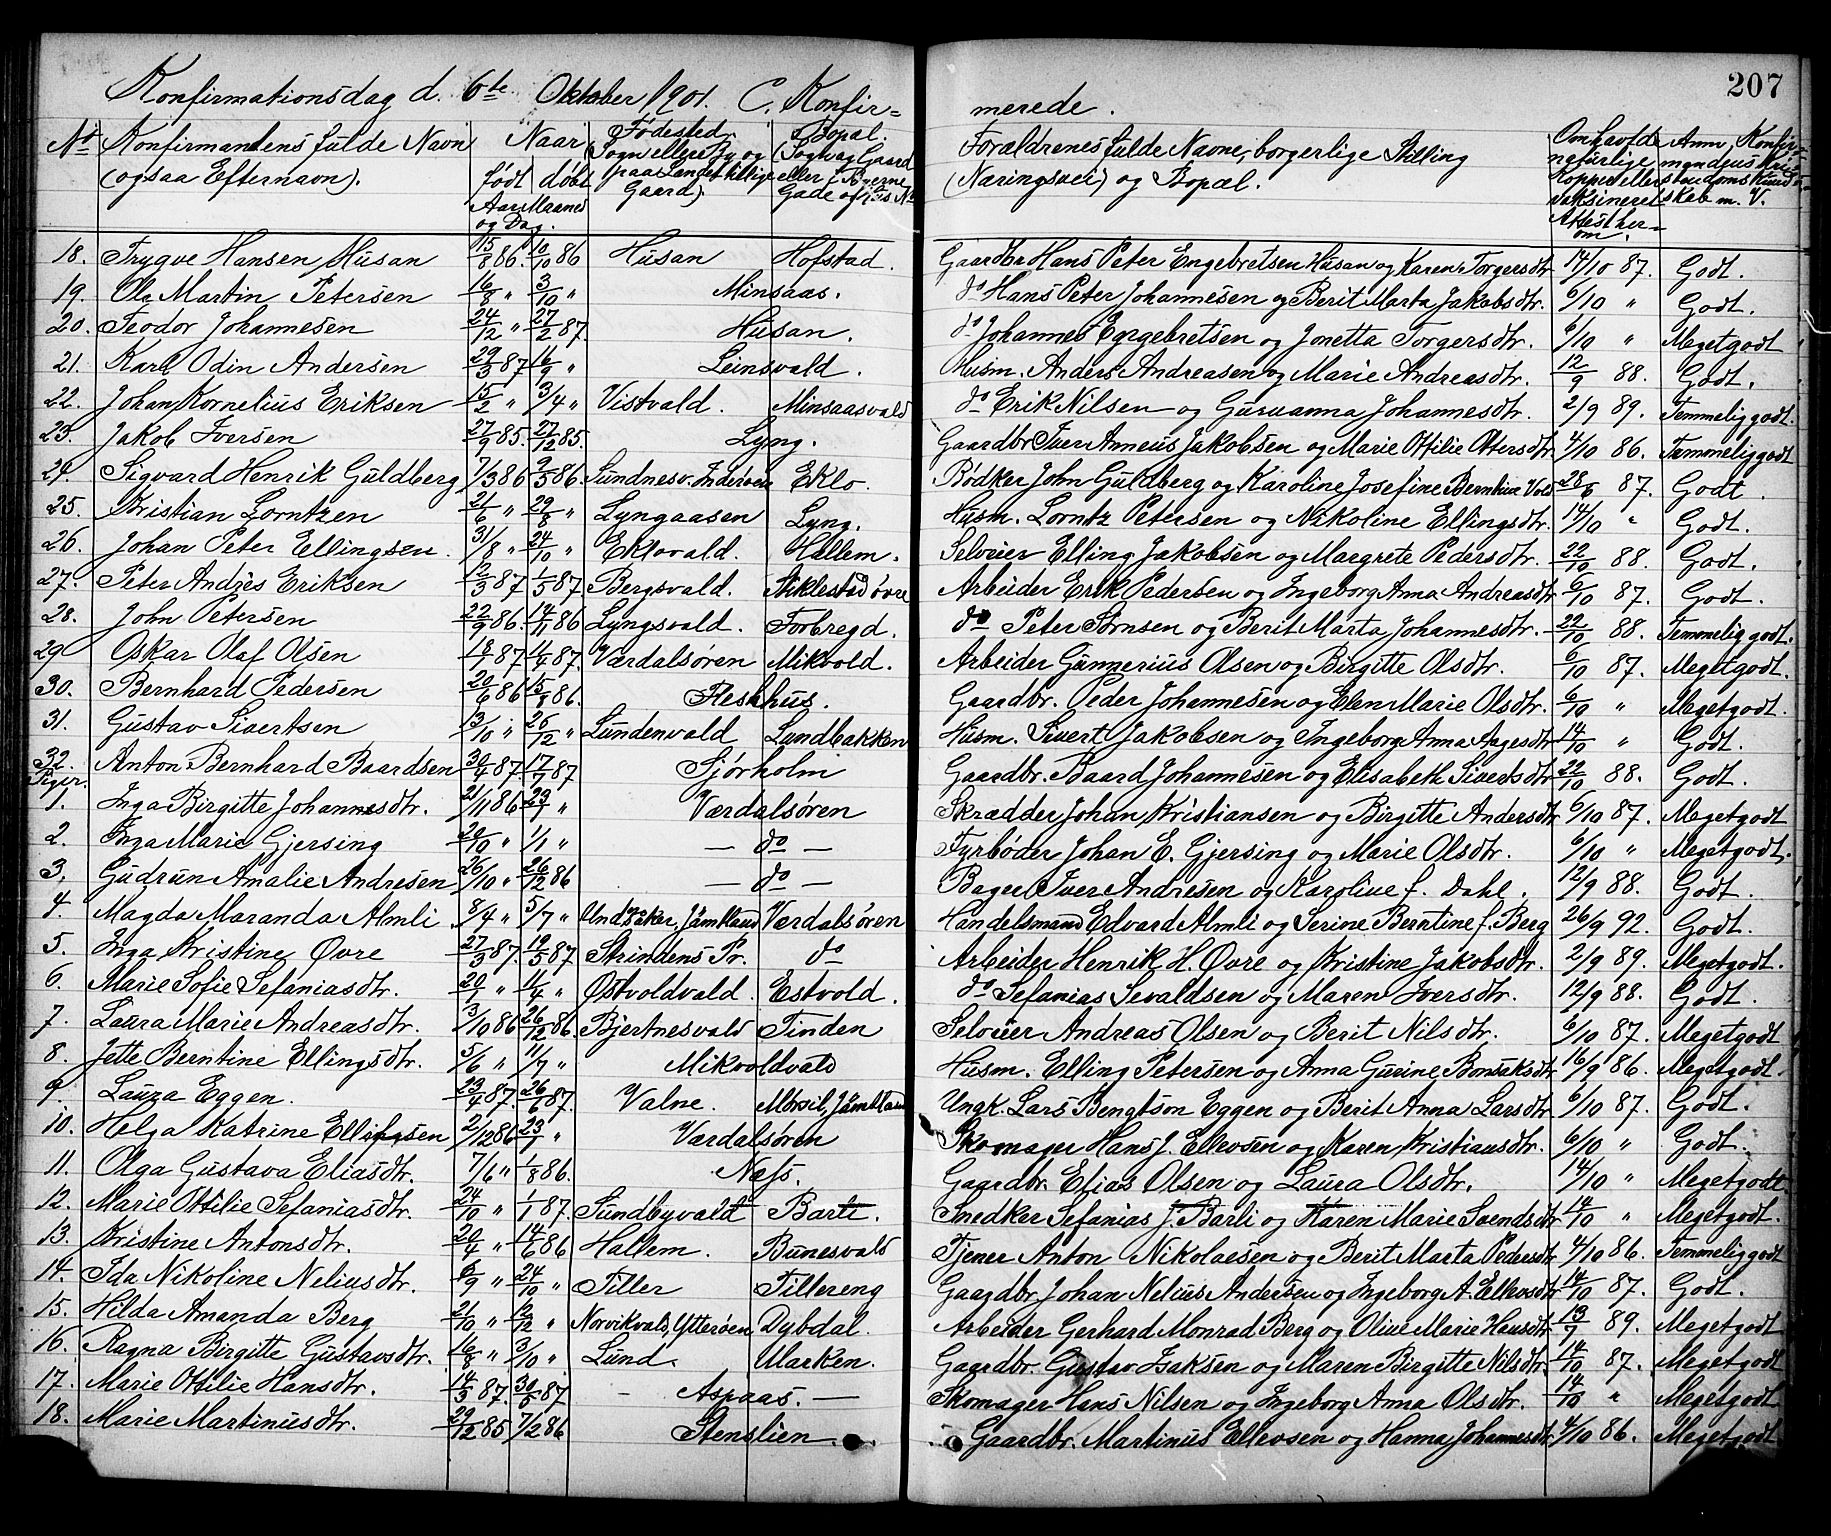 207
Konfirmationsdag d. 6te Oktober 1901. C. Konfirmerede.
No Konfirmandens fulde Navn (ogsaa Efternavn). Naar født døbt Aar Maaned og Dag. Fødested, Sogn eller By og (paa Landet tillige Gaard). Bopæl. (Sogn og Gaard eller i Byerne Gade og No Forældrenes fulde Navne, borgerlige Stilling (Næringsvei) og Bopæl. Om havfde naturlige Kopper eller vaksineret Attest herom. Anm. Konfirmandens Kristendomskundskab m. V.
18. Trygve Hansen Husan 15/8 86. 10/10 86 Husan Hofstad. Gaardbr Hans Peter Engebretsen Husan og Karen Torgersdtr 14/10 87. Godt.
19. Ole Martin Petersen 16/8 " 3/10 " Minsaas. do Hans Peter Johannesen og Berit Marta Jakobsdtr. 6/10 " Godt.
20. Teodor Johannesen 24/12 " 27/2 87. Husan. do Johannes Engebretsen og Jonetta Torgersdtr. 6/10 " Megetgodt
21. Karl Odin Andersen 29/3 87 16/9 " Leinsvald. Husm. Anders Andreasen og Marie Andreasdtr. 12/9 88. Godt.
22. Johan Kornelius Eriksen 15/2 " 3/4 " Vistvald. Minsaasvald do Erik Nilsen og Guruanna Johannesdtr. 2/9 89. Temmelig godt.
23. Jakob Iversen 27/9 85. 27/12 85. Lyng. Gaardbr Iver Anneus Jakobsen og Marie Otilie Ottersdtr 4/10 86. Temmelig godt
24. Sigvard Henrik Guldberg 7/3 86 2/5 86. Sundnesv. Inderøen Eklo. Bødker John Guldberg og Karoline Josefine Berntine Vold 28/6 87. Godt.
25. Kristian Lorntzen 21/6 " 29/8 " Lyngaasen Lyng. Husm. Lorntz Petersen og Nikoline Ellingsdtr. 14/10 " Godt.
26. Johan Peter Ellingsen. 31/8 " 24/10 " Eklovald. Hallem. Selveier Elling Jakobsen og Margrete Pedersdtr. 22/10 88. Godt.
27. Peter Andreas Eriksen 12/3 87 1/5 87. Bergsvald. Stiklestad øvre Arbeider Erik Pedersen og Ingeborg Anna Andreasdtr 6/10 87. Godt.
28. John Petersen 22/9 86. 14/11 86 Lyngsvald. Forbregd. do Peter Sørnsen og Berit Marta Johannesdtr. 22/10 88. Temmelig godt.
29 Oskar Olaf Olsen 18/1 87. 11/4 87. Værdalsøren Mikvold. Arbeider Gunnerius Olsen og Birgitte Olsdtr. 6/10 87. Megetgodt.
30. Bernhard Pedersen 20/6 86 15/8 86. Fleskhus. Gaardbr. Peder Johannesen og Elen Marie Olsdtr. 6/10 " Megetgodt.
31. Gustav Sivertsen 13/10 " 26/12 " Lundenvald Lundbakken Husm. Sivert Jakobsen og Ingeborg Anna Aagesdtr 14/10 " Godt.
32. Anton Bernhard Baardsen 30/4 87. 17/7 87 Sjørholm Gaardbr. Baard Johannesen og Elisabeth Sivertsdtr 22/10 88. Godt.
Piger.
1. Inga Birgitte Johannsdtr. 21/11 86 23/1 " Værdalsøren Skrædder Johan Kristiansen og Birgitte Andersdtr 6/10 87. Megetgodt
2. Inga Marie Gjersing 20/10 " 1/1 " — do — Fyrbøder Johan E. Gjersing og Marie Olsdtr. 6/10 " Megetgodt.
3. Gudrun Amalie Andresen 26/10 " 26/12 86 — do — Bager Iver Andresen og Karoline f. Dahl. 12/9 88. Godt.
4. Magda Maranda Almli 8/4 " 5/7 " Undersåker, Jämtland Værdalsøren Handelsmand Edvard Almli og Serine Berntine f. Berg 26/9 92. Godt.
5. Inga Kristine Øvre 27/3 87. 19/5 87 Strindens Pr. do Arbeider Henrik H. Øvre og Kristine Jakobsdtr. 2/9 89. Megetgodt.
6. Marie Sofie Sefaniasdtr. 20/1 " 11/4 " Østvoldvald. Estvold. do Sefanias Sevaldsen og Maren Iversdtr. 12/9 88. Godt.
7. Laura Marie Andreasdtr. 3/10 86 26/12 86. Bjertnesvald Tinden Selveier Andreas Olsen og Berit Nilsdtr. 6/10 87. Megetgodt
8. Jette Berntine Ellingsdtr. 5/6 " 11/7 " Mikvoldvald Husm. Elling Petersen og Anna Gurine Bonsaksdtr 16/9 86. Megetgodt.
9. Laura Eggen. 23/4 87. 26/6 87. Valne. Mörsil, Jämtland Ungk. Lars Bengtson Eggen og Berit Anna Larsdtr 6/10 87. Godt.
10. Helga Katrine Ellingsen 2/12 86 23/1 " Værdalsøren Skomager Hans J. Ellevsen og Karen Kristiansdtr. 6/10 " Godt.
11. Olga Gustava Eliasdtr. 7/6 " 1/8 86. Næss. Gaardbr. Elias Olsen og Laura Olsdtr. 14/10 " Megetgodt.
12. Marie Otilie Sefaniasdtr. 24/10 " 1/1 87. Sundbyvald Barli. Snedker Sefanias J. Barli og Karen Marie Svendsdtr 14/10 " Megetgodt.
13. Kristine Antonsdtr. 20/4 " 14/6 86 Hallem. Bunesvald Tjener Anton Nikolaesen og Berit Marta Pedersdtr 4/10 86. Temmelig godt
14. Ida Nikoline Neliusdtr. 6/9 " 24/10 " Tiller Tillereng Gaardbr. Johan Nelius Andersen og Ingeborg A. Ellevsdtr 14/10 87. Godt.
15. Hilda Amanda Berg 21/10 " 12/12 " Norvikvald, Ytterøen Dybdal. Arbeider Gerhard Monrad Berg og Oline Marie Hansdtr 13/9 89. Megetgodt
16. Ragna Birgitte Gustavsdtr. 16/8 " 3/10 " Lund. Marken. Gaardbr. Gustav Isaksen og Maren Birgitte Nilsdtr. 14/10 87. Megetgodt
17. Marie Otilie Hansdtr. 14/3 87. 30/5 87 — Aspaas. — Skomager Hans Nilsen og Ingeborg Anna Olsdtr. 14/10 " Megetgodt
18. Marie Martinusdtr. 29/12 85 7/2 86 Stenslien. Gaardbr. Martinus Ellevsen og Hanna Johannesdtr. 4/10 86. Megetgodt